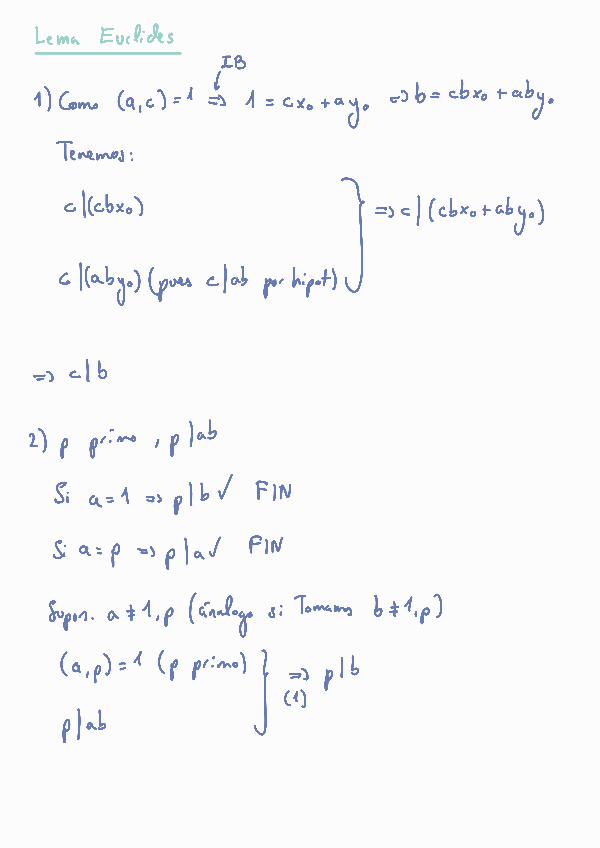 Lema Euclides
IB
1) Como (a,c)=1 => 1 = cx₀ + ay₀ => b = cbx₀ + aby₀
Tenemos:
c|(cbx₀)
=> c|(cbx₀ + aby₀)
c|(aby₀) (pues c|ab por hipot)
=> c|b
2) p primo, p|ab
Si a = 1 => p|b ✓ FIN
Si a = p => p|a ✓ FIN
Supon. a ≠ 1, p (análogo si Tomamos b ≠ 1, p)
(a,p) = 1 (p primo)
=> p|b
(1)
p|ab